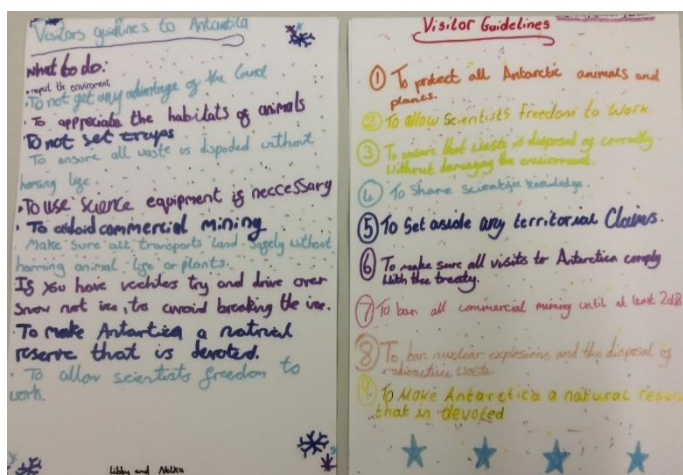 Visitors guidlines to Antartica
what to do:
• respect the enviroment
• To not get any advantage of the land
• To appreciate the habitats of animals
To not set traps
To ensure all waste is dispoded without
harming lige.
• To use science equipment is neccessary
• To avoid commercial mining
Make sure all transports land safely without
harming animal lige or plants.
If you have vechiles try and drive over
snow not ice, to avoid breaking the ice.
• To make Antartica a natural
reserve that is devoted.
• To allow scientists freedom to
work.
Libby and
Visitor Guidelines
1 To protect all Antarctic animals and
plants.
2 To allow Scientists freedom to work.
3 To ensure that waste is disposal of correctly
without damaging the environment.
4 To share scientific knowledge.
5 To Set aside any territorial Claims.
6 To make sure all visits to Antarctica comply
with the treaty.
7 To ban all commercial mining until at least
8 To ban nuclear explosions and the disposal of
radioactive waste.
9 To Make Antarctica a natural
that is devoted